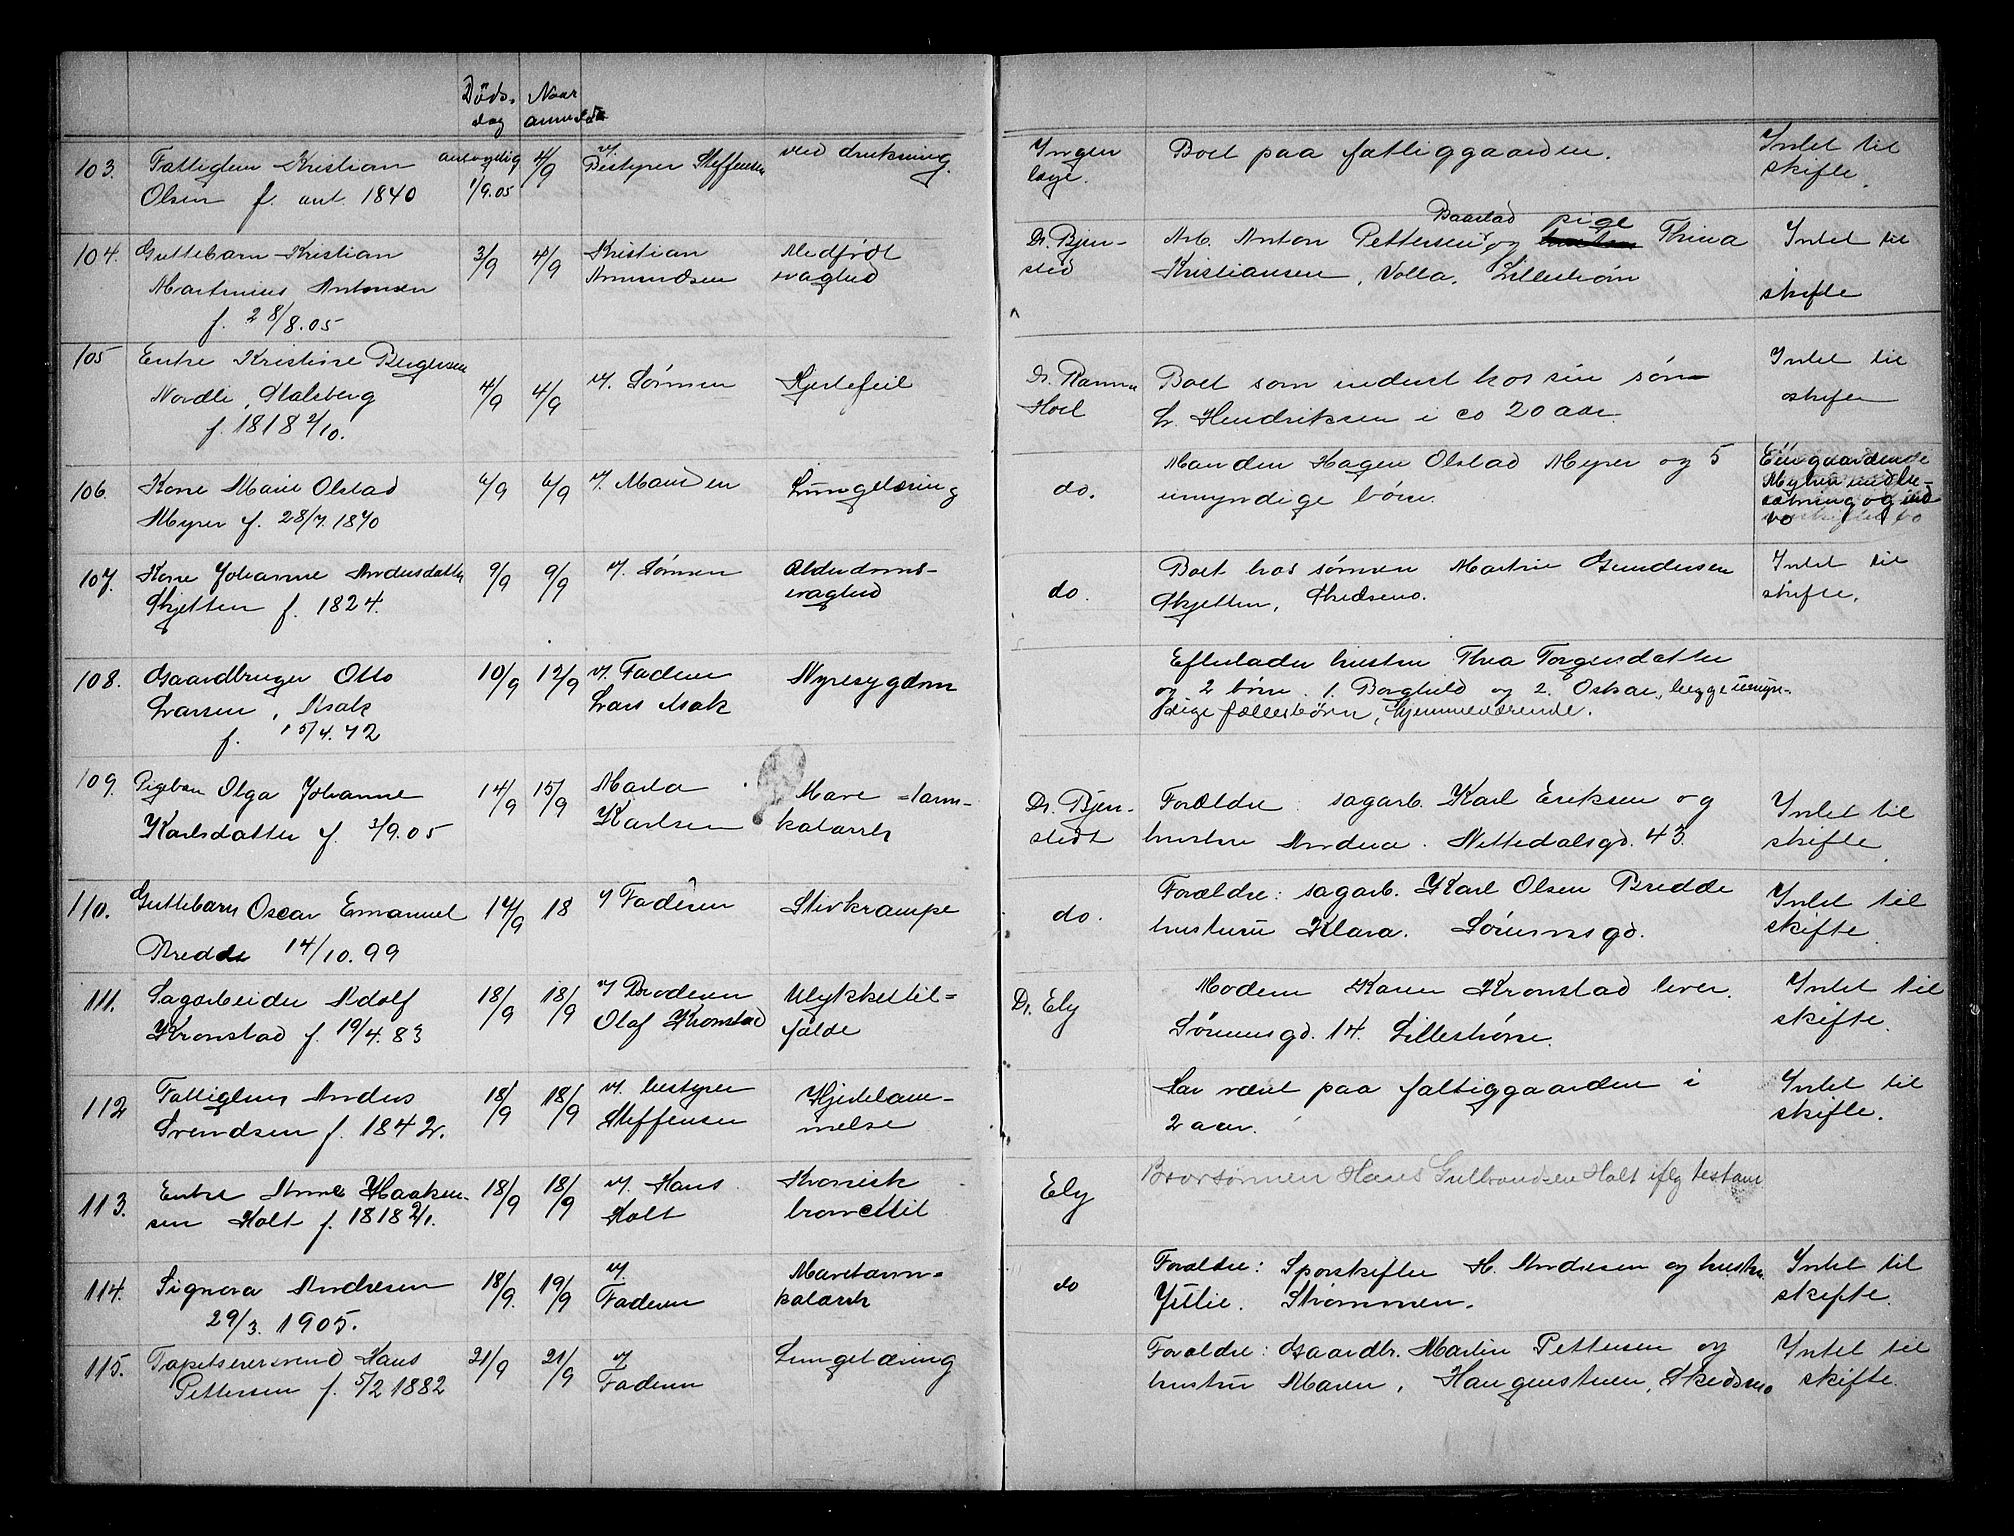 Døds- Naar
dag anmeldt
103. Fattiglem Kristian antagelig 4/9 v. ved drukning. Ingen Boet paa fattiggaarden. Intet til
Olsen f. ant. 1840 1/9.05 Bestyrer Steffensen læge. skifte.
104. Guttebarn Kristian 3/9 4/9 Kristian Medfødt Dr. Bjer- Arb. Anton Pettersen Baastad og pige Thina Intet til
Martinius Antonsen Amundsen svaghed sted Kristiansen, Volla, Lillestrøm skifte
f. 28/8.05
105 Enke Kristine Birgersen 4/9 4/9 v. Sønnen Hjertefeil Dr. Ramm Boet som inderst hos sin søn Intet til
Nordli, Stalsberg Hoel L. Hendriksen i ca 20 aar skifte
f. 1818 2/10.
106. Kone Marie Olstad 6/9 6/9 v. Manden Lungetæring do. Manden Hagen Olstad Myrer og 5
Myrer f. 28/7.1870 umyndige børn.
107. Kone Johanne Andersdatter 9/9 9/9 v. Sønnen Alderdoms- do. Boet hos sønnen Martin Gundersen Intet til
Skjetten f. 1824. svaghed Skjetten, Skedsmo. skifte.
108. Gaardbruger Otto 10/9 12/9 v. Faderen Nyresygdom Efterlader hustru Thea Torgersdatter
Larsen, Asak Lars Asak og 2 børn. 1. Borghild og 2. Oskar, begge umyn-
f. 15/4.72 dige fællesbørn, hjemmeværende.
109. Pigebarn Olga Johanne 14/9 15/9 Marta Mave-tarm- Dr. Bjer- Forældre: sagarb. Karl Eriksen og Intet til
Karlsdatter f. 3/9.05 Karlsen katarrh stedt hustru Andrea. Nittedalsgd. 43. skifte.
110. Guttebarn Oscar Emanuel 17/9 18 v Faderen Stivkrampe do. Forældre: sagarb. Karl Olsen Bredde Intet til
Bredde 14/10.99 hustru Klara. Sørumsgd. skifte.
111. Sagarbeider Adolf 18/9 18/9 v Broderen Ulykkestil- Dr. Ely Modern Karen Kronstad lever. Intet til
Kronstad f. 19/4.83 Olaf Kronstad fælde Sørumsgd. 14. Lillestrøm. skifte.
112 Fattiglem Anders 18/9 18/9 v. bestyrer Hjertelam- Har været paa fattiggaarden i Intet til
Svendsen f. 1842. Steffensen melse 2 aar. skifte.
113. Enke Anne Haaken- 18/9 18/9 v. Hans Kronisk Ely Brorsønnen Hans Gulbrandsen Holt iflg testam
sen Holt f. 1818 2/1. Holt bronchit
114. Signora Andresen 18/9. 19/9 v. Mavetarm- do Forældre: Sporskifter H. Andresen og hustru Intet til
29/3. 1905. Faderen katarrh Jillie. Strømmen. skifte.
115. Tapetserersvend Hans 21/9 21/9 v Lungetæring Forældre: Gaardbr. Martin Pettersen og Intet til
Pettersen f. 5/2 1882 Faderen hustru Maren, Haugenstuen, Skedsmo skifte.